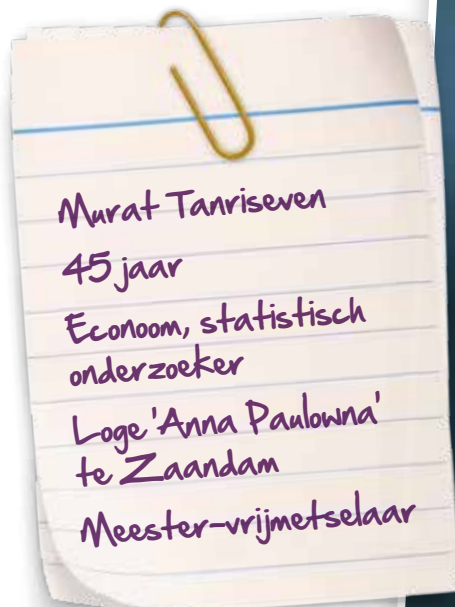 Murat Tanriseven
45 jaar
Econoom, statistisch
onderzoeker
Loge 'Anna Paulowna'
te Zaandam
Meester-vrijmetselaar